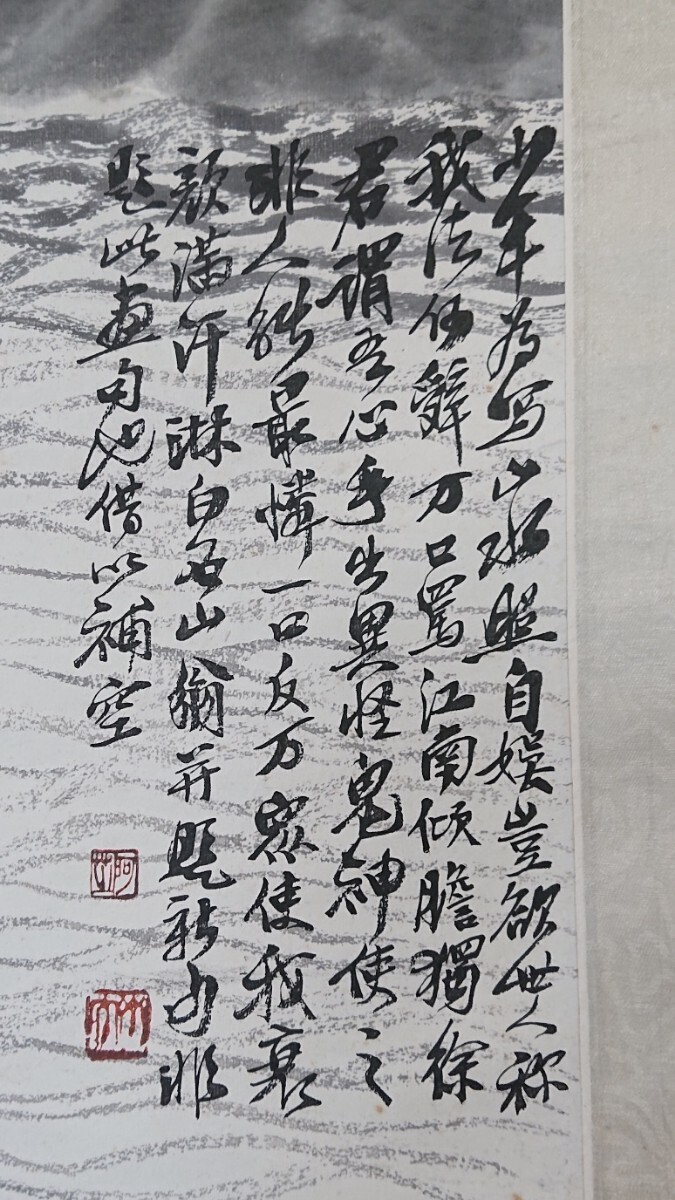 少年为写山水照自娱岂欲世人称
我法何辞万口骂江南倾胆独徐
君谓吾心手出异怪鬼神使之
非人能最怜一口反万众使我衰
颜满汗淋白石山翁并题新句非
题此画句也借以补空
阿芝